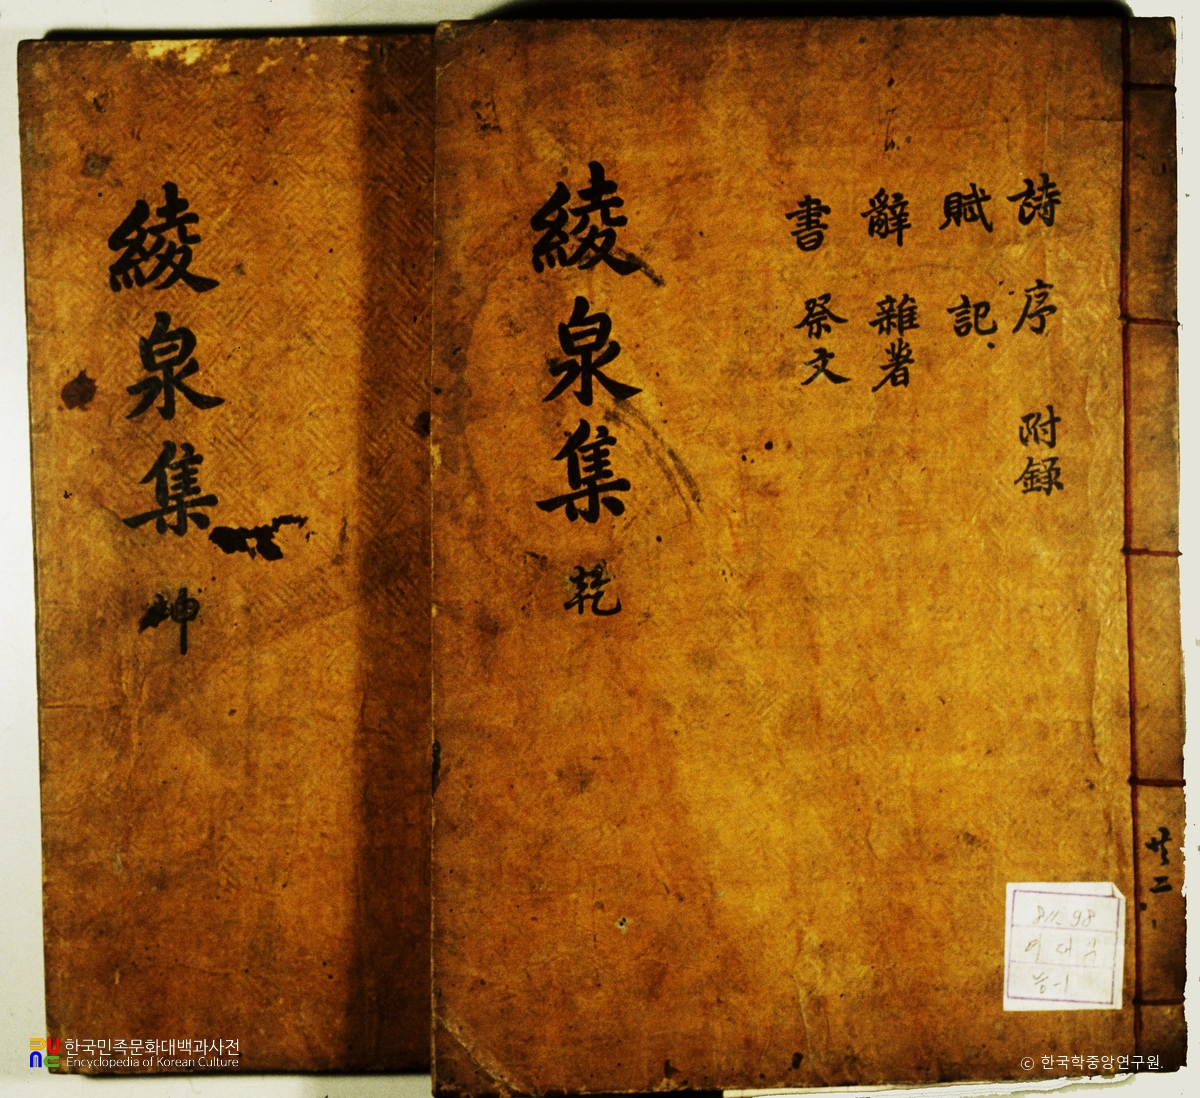 詩 序 附錄
賦 記
辭 雜著
書 祭文
綾泉集 乾
綾泉集 坤
共二
811.98
여대임
능-1
한국민족문화대백과사전
Encyclopedia of Korean Culture
ⓒ 한국학중앙연구원.